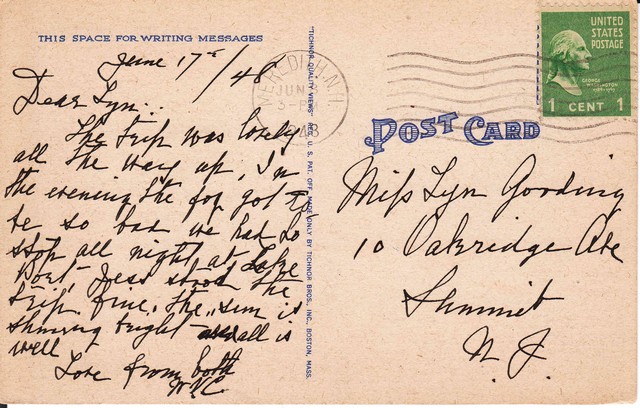 THIS SPACE FOR WRITING MESSAGES
June 17th/48
Dear Lyn..
The trip was lovely
all the way up, In
the evening the fog got to
be so bad we had to
stop all night at Lake
Port, Jess stood the
trip fine. The sun is
shining bright all is
well
Love from both
"TICHNOR QUALITY VIEWS" REG. U. S. PAT. OFF. MADE ONLY BY TICHNOR BROS. INC., BOSTON, MASS.
MEREDITH, N.H.
JUN
3-PM
POST CARD
UNITED
STATES
POSTAGE
GEORGE
WASHINGTON
1 CENT 1
Miss Lyn Gooding
10 Oakridge Ave
Summit
N. J.